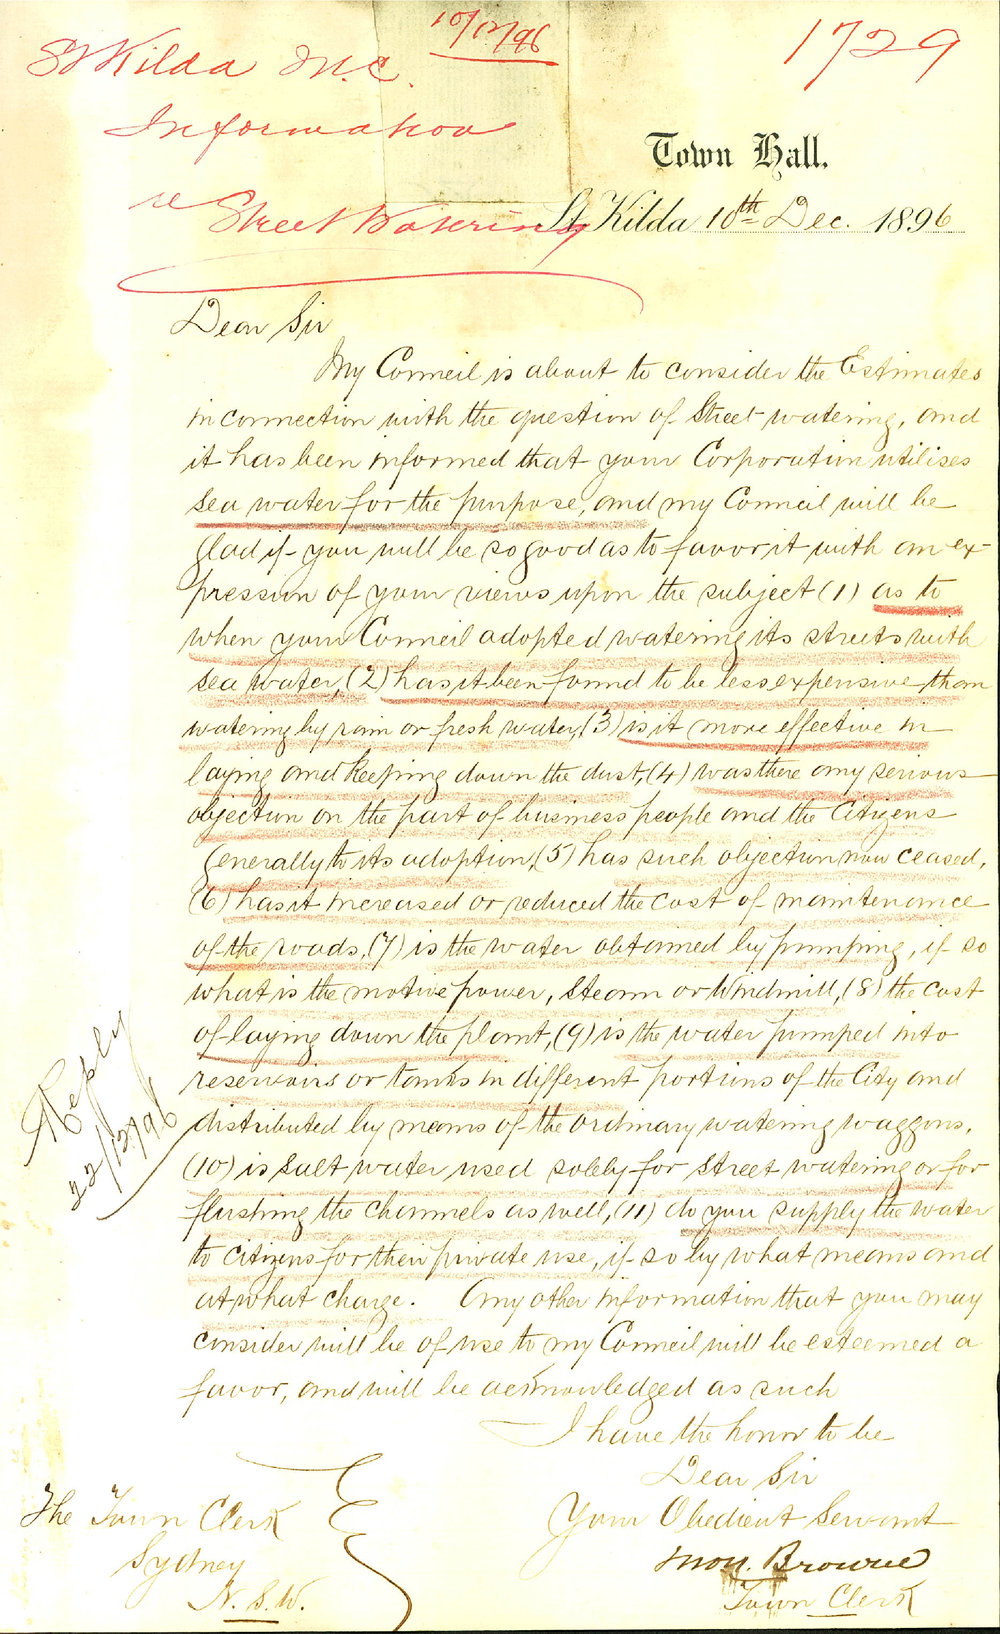 10/12/96
1729
St Kilda M.C.
Information
re
Street Watering
Town Hall,
St. Kilda 10th Dec. 1896
Dear Sir
My Council is about to consider the Estimates
in connection with the question of Street watering, and
it has been informed that your Corporation utilises
sea water for the purpose, and my Council will be
glad if you will be so good as to favor it with an ex-
pression of your views upon the subject (1) as to
when your Council adopted watering its streets with
sea water, (2) has it been found to be less expensive than
watering by rain or fresh water, (3) is it more effective in
laying and keeping down the dust, (4) was there any serious
objection on the part of business people and the Citizens
generally to its adoption, (5) has such objection now ceased,
(6) has it increased or reduced the cost of maintenance
of the roads, (7) is the water obtained by pumping, if so
what is the motive power, Steam or Windmill, (8) the cost
of laying down the plant, (9) is the water pumped into
reservoirs or tanks in different portions of the City and
distributed by means of the ordinary watering waggons,
(10) is salt water used solely for street watering or for
flushing the channels as well, (11) do you supply the water
to citizens for their private use, if so by what means and
at what charge. Any other information that you may
consider will be of use to my Council will be esteemed a
favor, and will be acknowledged as such
Reply
22/12/96
I have the honor to be
Dear Sir
Your Obedient Servant
Browne
Town Clerk
The Town Clerk
Sydney
N.S.W.